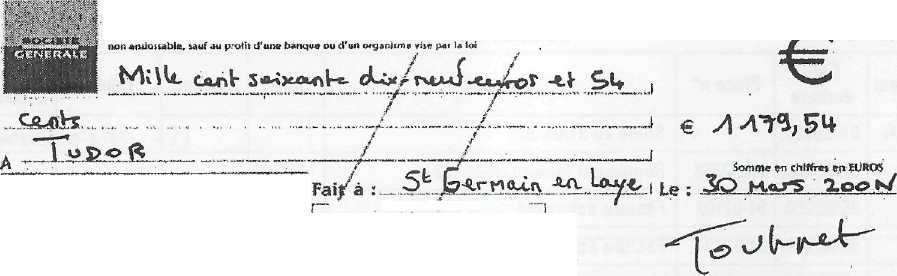 SOCIETE
GENERALE
non endossable, sauf au profit d'une banque ou d'un organisme visé par la loi
€
Mille cent soixante dix-neuf euros et 54
cents
€ 1179,54
A TUDOR
Somme en chiffres en EUROS
Fait à : St Germain en Laye Le : 30 Mars 200N
Toutnet